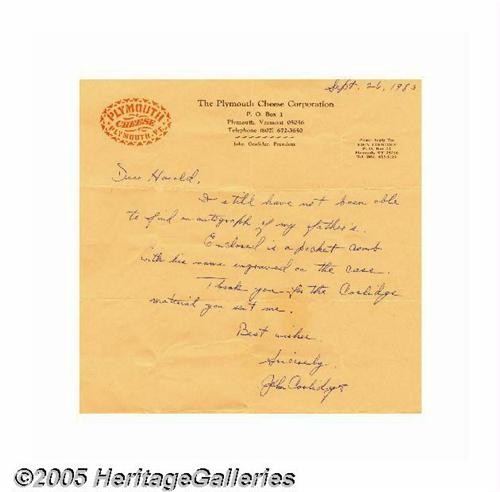 Sept. 26, 1983
PLYMOUTH
CHEESE
PLYMOUTH, VT.
The Plymouth Cheese Corporation
P. O. Box 1
Plymouth, Vermont 05056
Telephone (802) 672-3650
John Coolidge, President
Please Reply To:
JOHN COOLIDGE
Dear Harold,
I still have not been able
to find an autograph of my father's.
Enclosed is a pocket comb
with his name engraved on the case.
Thank you for the Coolidge
material you sent me.
Best wishes.
Sincerely,
John Coolidge
©2005 HeritageGalleries